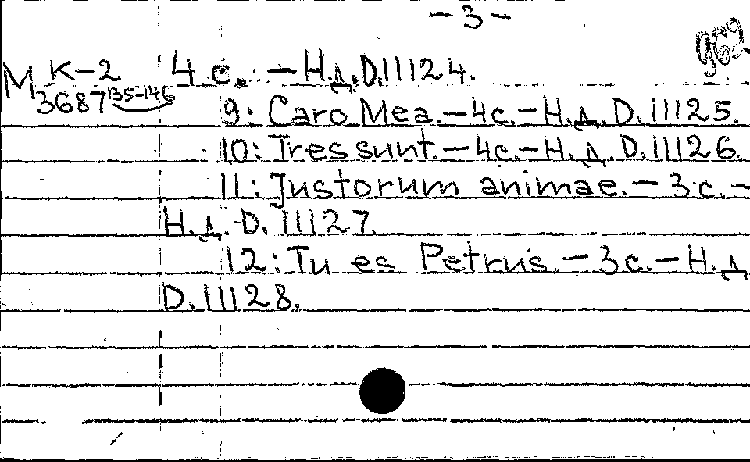 -3-
969
М К-2 4 с. - Н.д. D.11124.
3687 135-146 9: Caro Mea. - 4с. - Н.д. D.11125.
10: Tres sunt. - 4с. - Н.д. D.11126.
11: Justorum animae. - 3с. -
Н.д. D. 11127.
12: Tu es Petrus. - 3с. - Н.д
D.11128.